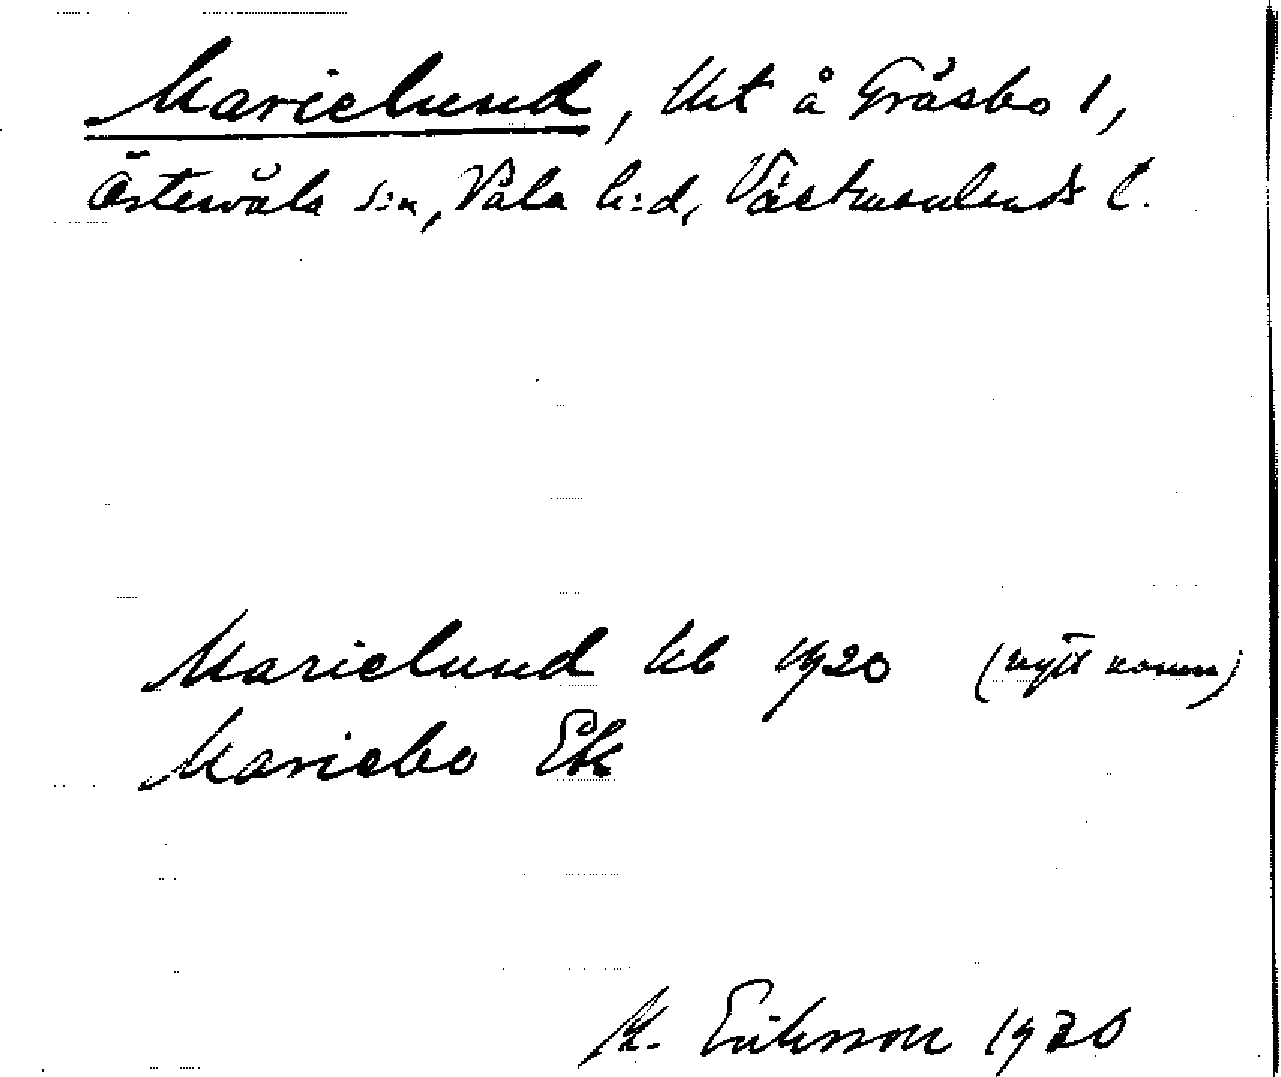 Marielund, lht å Gräsbo 1,
Östervåla s:n, Våla h:d, Västmanlands l.
Marielund kb 1920 (nytt namn)
Mariebo Ebk
M. Eriksson 1930